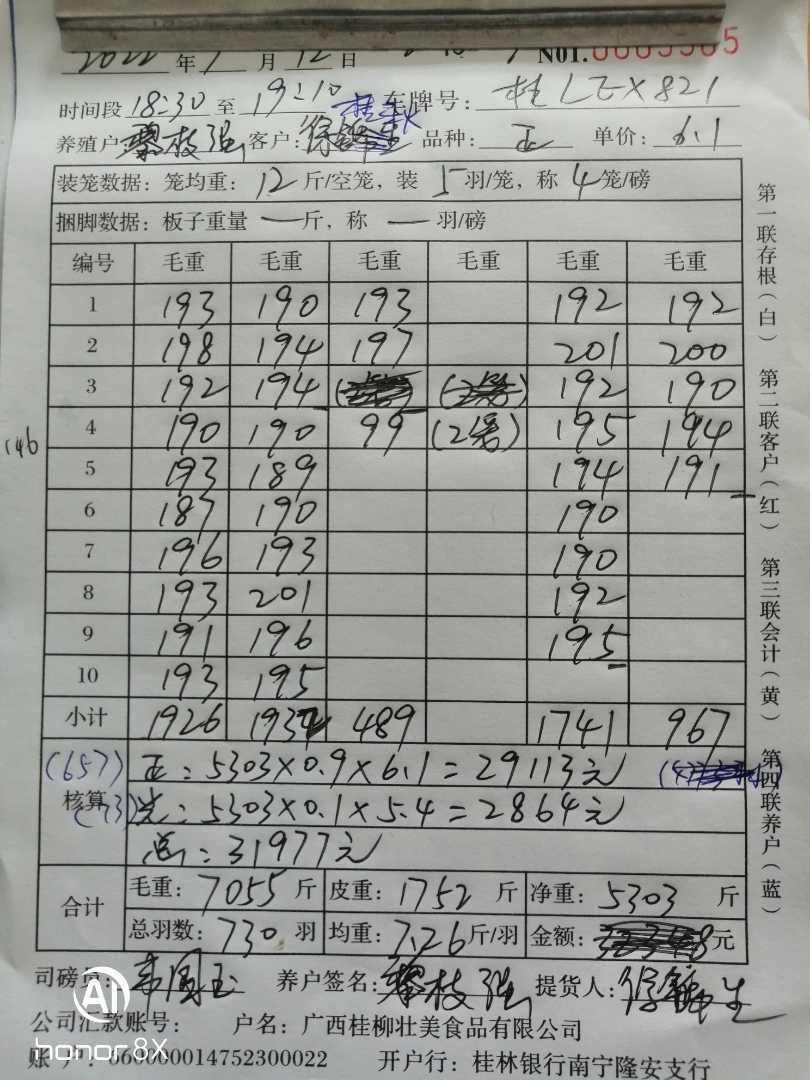 2022 年 1 月 12 日 N01. 0005565
时间段 18:30 至 19:10 车牌号: 桂LEX821
养殖户 黎枝强 客户: 徐 生 品种: 正 单价: 6.1
装笼数据: 笼均重: 12 斤/空笼, 装 5 羽/笼, 称 4 笼/磅
捆脚数据: 板子重量 — 斤, 称 — 羽/磅
编号 毛重 毛重 毛重 毛重 毛重 毛重
1 193 190 193 192 192
2 198 194 197 201 200
3 192 194 192 190
4 190 190 99 (2笼) 195 194
146
5 193 189 194 191
6 187 190 190
7 196 193 190
8 193 201 192
9 191 196 195
10 193 195
小计 1926 1932 489 1741 967
核算
(657) 正: 5303×0.9×6.1=29113元
(73) 5303×0.1×5.4=2864元
总: 31977元
合计
毛重: 7055 斤 皮重: 1752 斤 净重: 5303 斤
总羽数: 730 羽 均重: 7.26 斤/羽 金额: 元
司磅员: 韦周玉 养户签名: 黎枝强 提货人: 徐 生
公司汇款账号: 户名: 广西桂柳壮美食品有限公司
账 户: 660000014752300022 开户行: 桂林银行南宁隆安支行
第一联存根(白) 第二联客户(红) 第三联会计(黄) 第四联养户(蓝)
AI
honor 8X